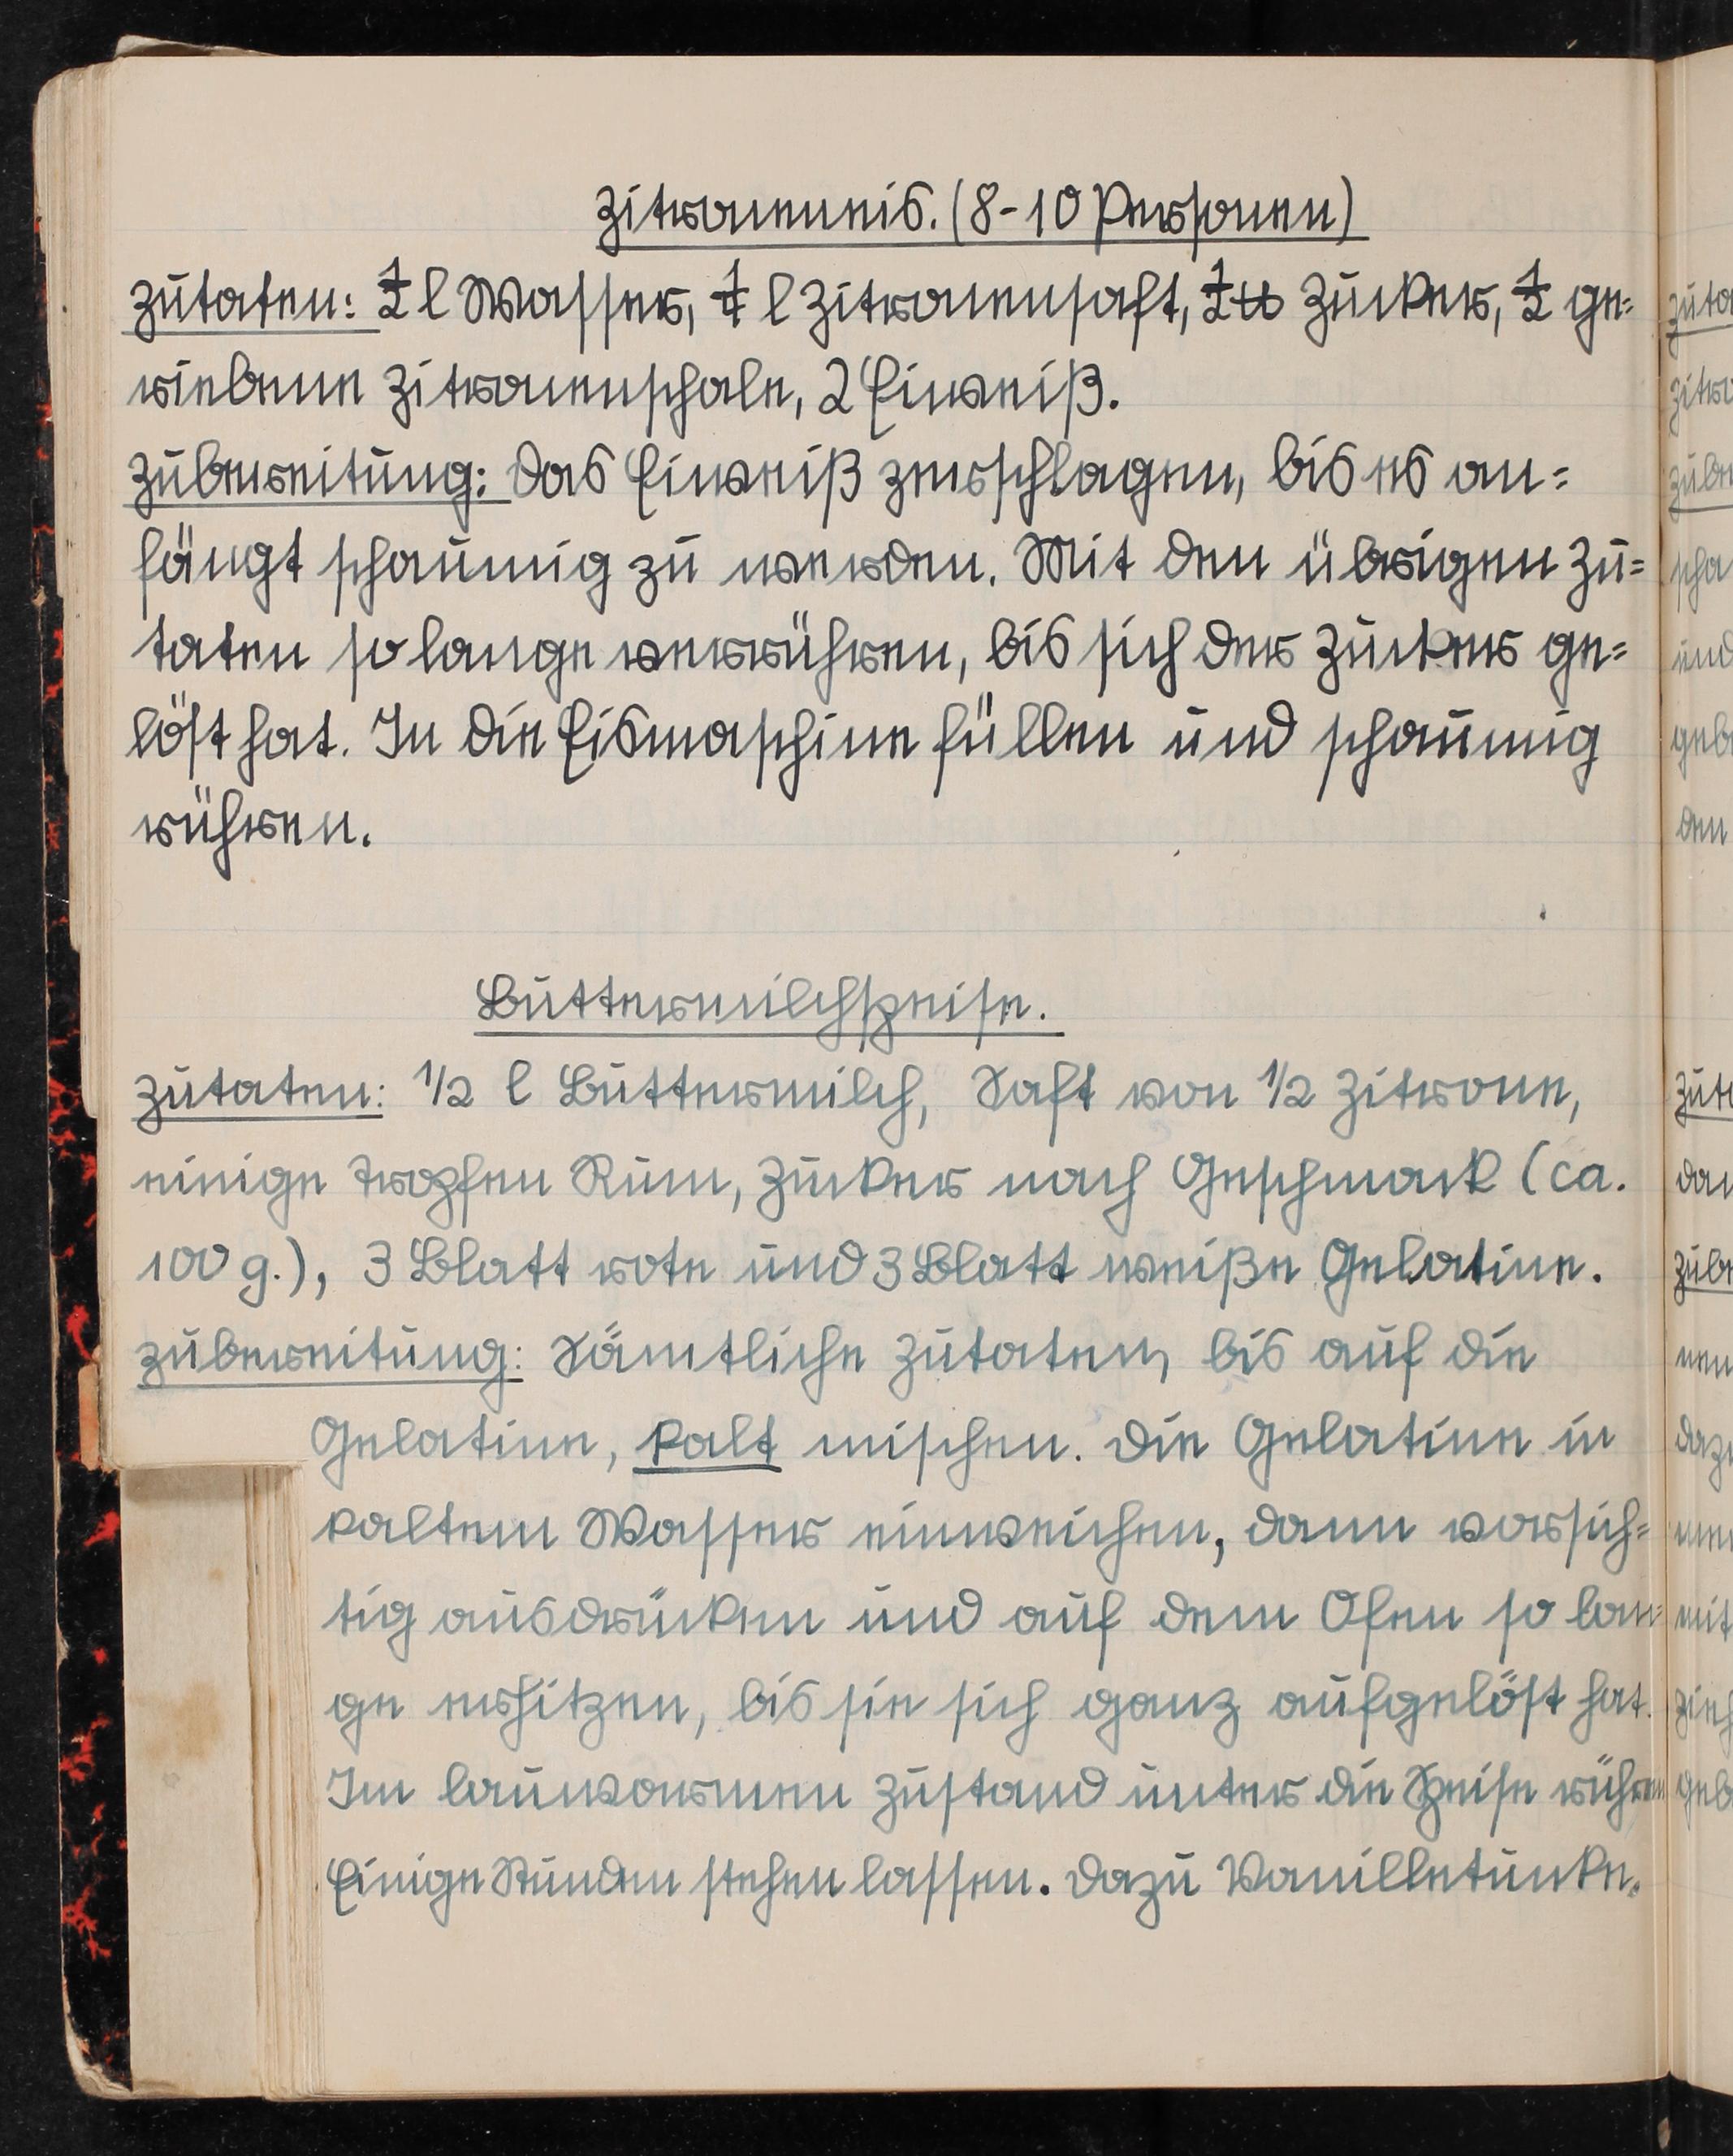 Zitroneneis. (8-10 Personen)
Zutaten: ½ l Wasser, ¼ l Zitronensaft, ½ ℔ Zucker, ½ ge=
riebene Zitronenschale, 2 Eiweiß.
Zubereitung: Das Eiweiß zerschlagen, bis es an=
fängt schaumig zu werden. Mit den übrigen Zu=
taten so lange verrühren, bis sich der Zucker ge=
löst hat. In die Eismaschine füllen und schaumig
rühren.
Buttermilchspeise.
Zutaten: 1/2 l Buttermilch, Saft von 1/2 Zitrone,
einige Tropfen Rum, Zucker nach Geschmack (ca.
100 g.), 3 Blatt rote und 3 Blatt weiße Gelatine.
Zubereitung: Sämtliche Zutaten, bis auf die
Gelatine, kalt mischen. Die Gelatine in
kaltem Wasser einweichen, dann vorsich=
tig ausdrücken und auf dem Ofen so lan=
ge erhitzen, bis sie sich ganz aufgelöst hat.
Im lauwarmen Zustand unter die Speise rühren
Einige Stunden stehen lassen. Dazu Vanilletunke.